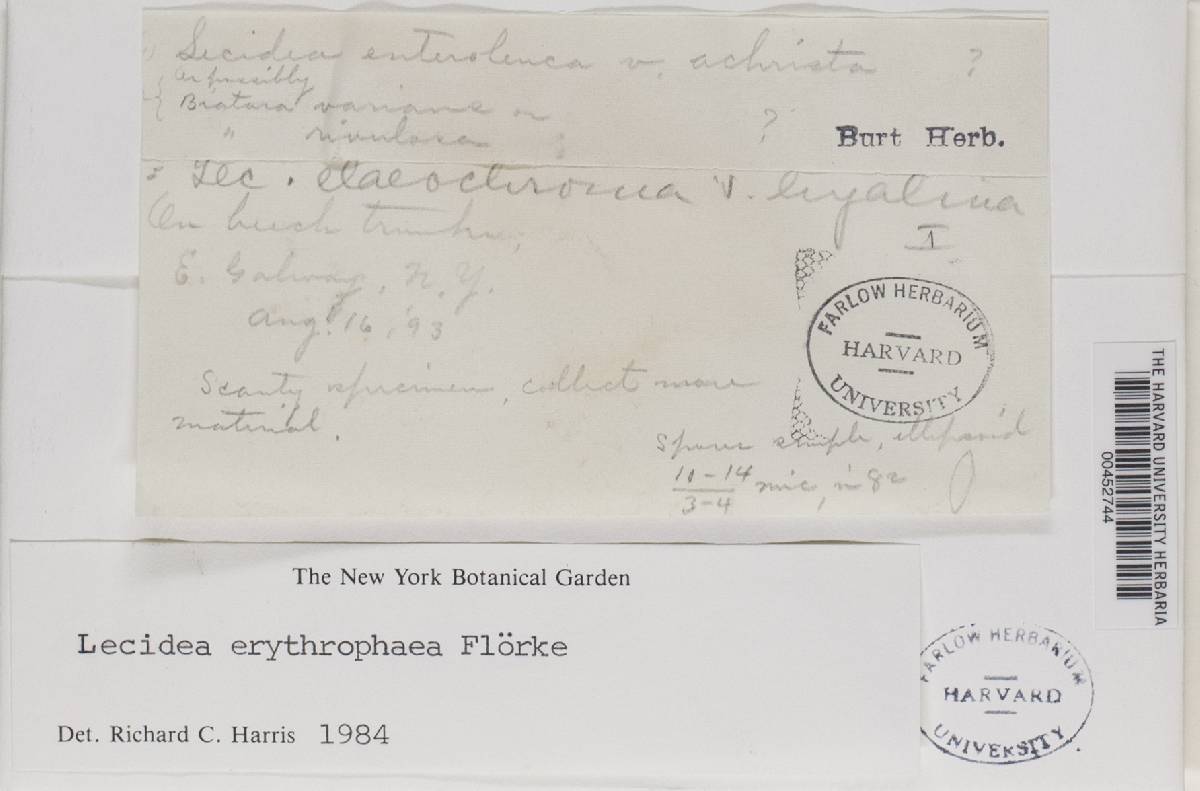 Lecidea enteroleuca v. achrista ?
or possibly
Biatora varians or
" rivulosa ?
Burt Herb.
= Lec. elaeochroma v. hyalina
On beech trunks,
I
E. Galway, N.Y.
Aug. 16, '93
Scanty specimen, collect more
material.
FARLOW HERBARIUM
HARVARD
UNIVERSITY
Spores simple, ellipsoid
11-14
3-4 mic, in 8s
THE HARVARD UNIVERSITY HERBARIA
00452744
The New York Botanical Garden
Lecidea erythrophaea Flörke
Det. Richard C. Harris 1984
FARLOW HERBARIUM
HARVARD
UNIVERSITY